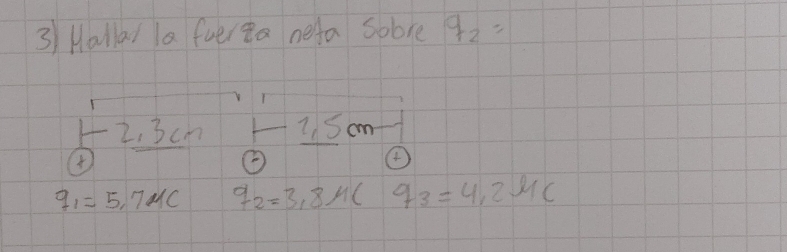 3) Hallar la fuerza neta sobre q₂=
2,3cm 1,5cm
+ - +
q₁=5,7μC q₂=3,8μC q₃=4,2μC